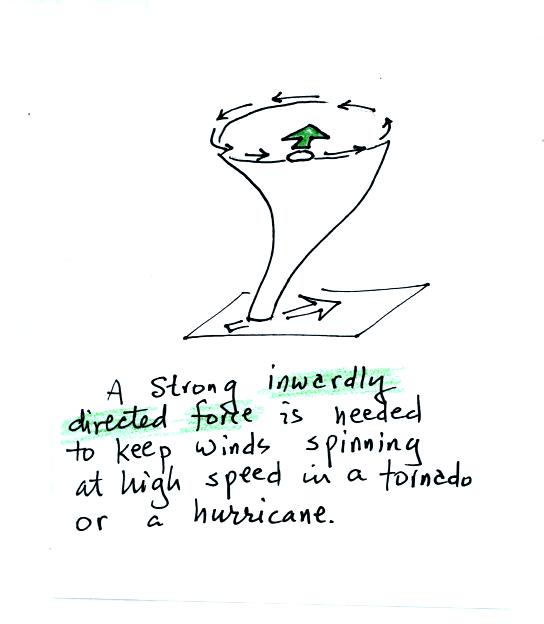 A strong inwardly
directed force is needed
to keep winds spinning
at high speed in a tornado
or a hurricane.